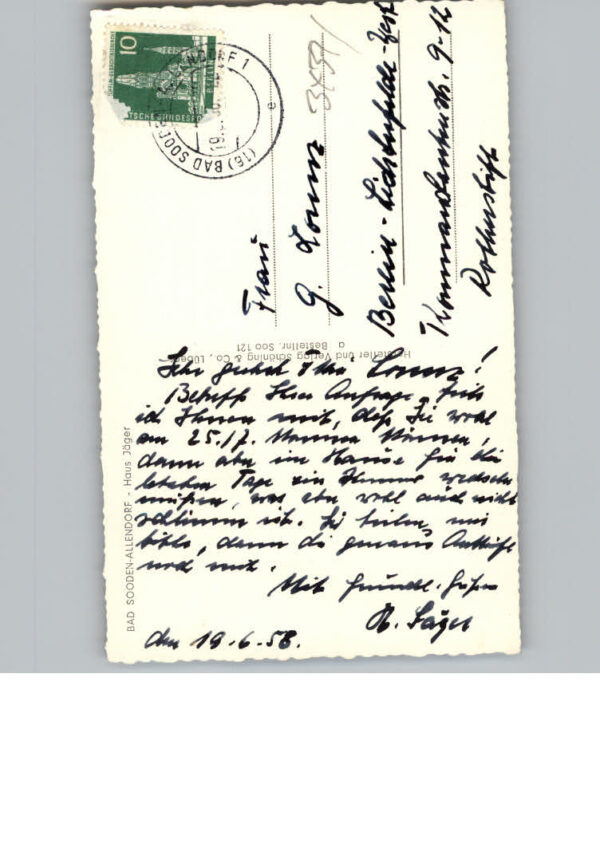 10
DEUTSCHE BUNDESPOST
BERLIN
(16) BAD SOODEN-ALLENDORF 1
e
3x37/
Frau
G. Lorenz
Berlin-Lichterfelde-West
Kommandantenstr. 9-12
Rotherstift
Hersteller und Verlag Schöning & Co., Lübeck
a Bestellnr. Soo 121
BAD SOODEN-ALLENDORF - Haus Jäger
Sehr geehrte Frau Lorenz!
Betreff Ihrer Anfrage, teile
ich Ihnen mit, daß Sie wohl
am 25./7. kommen können,
dann aber im Hause für die
letzten Tage ein Zimmer wechseln
müßen, was aber wohl auch nicht
schlimm ist. Sie teilen mir
bitte, dann die genaue Ankunft
noch mit.
Mit freundl. Grüßen
Jäger
den 19.6.58.